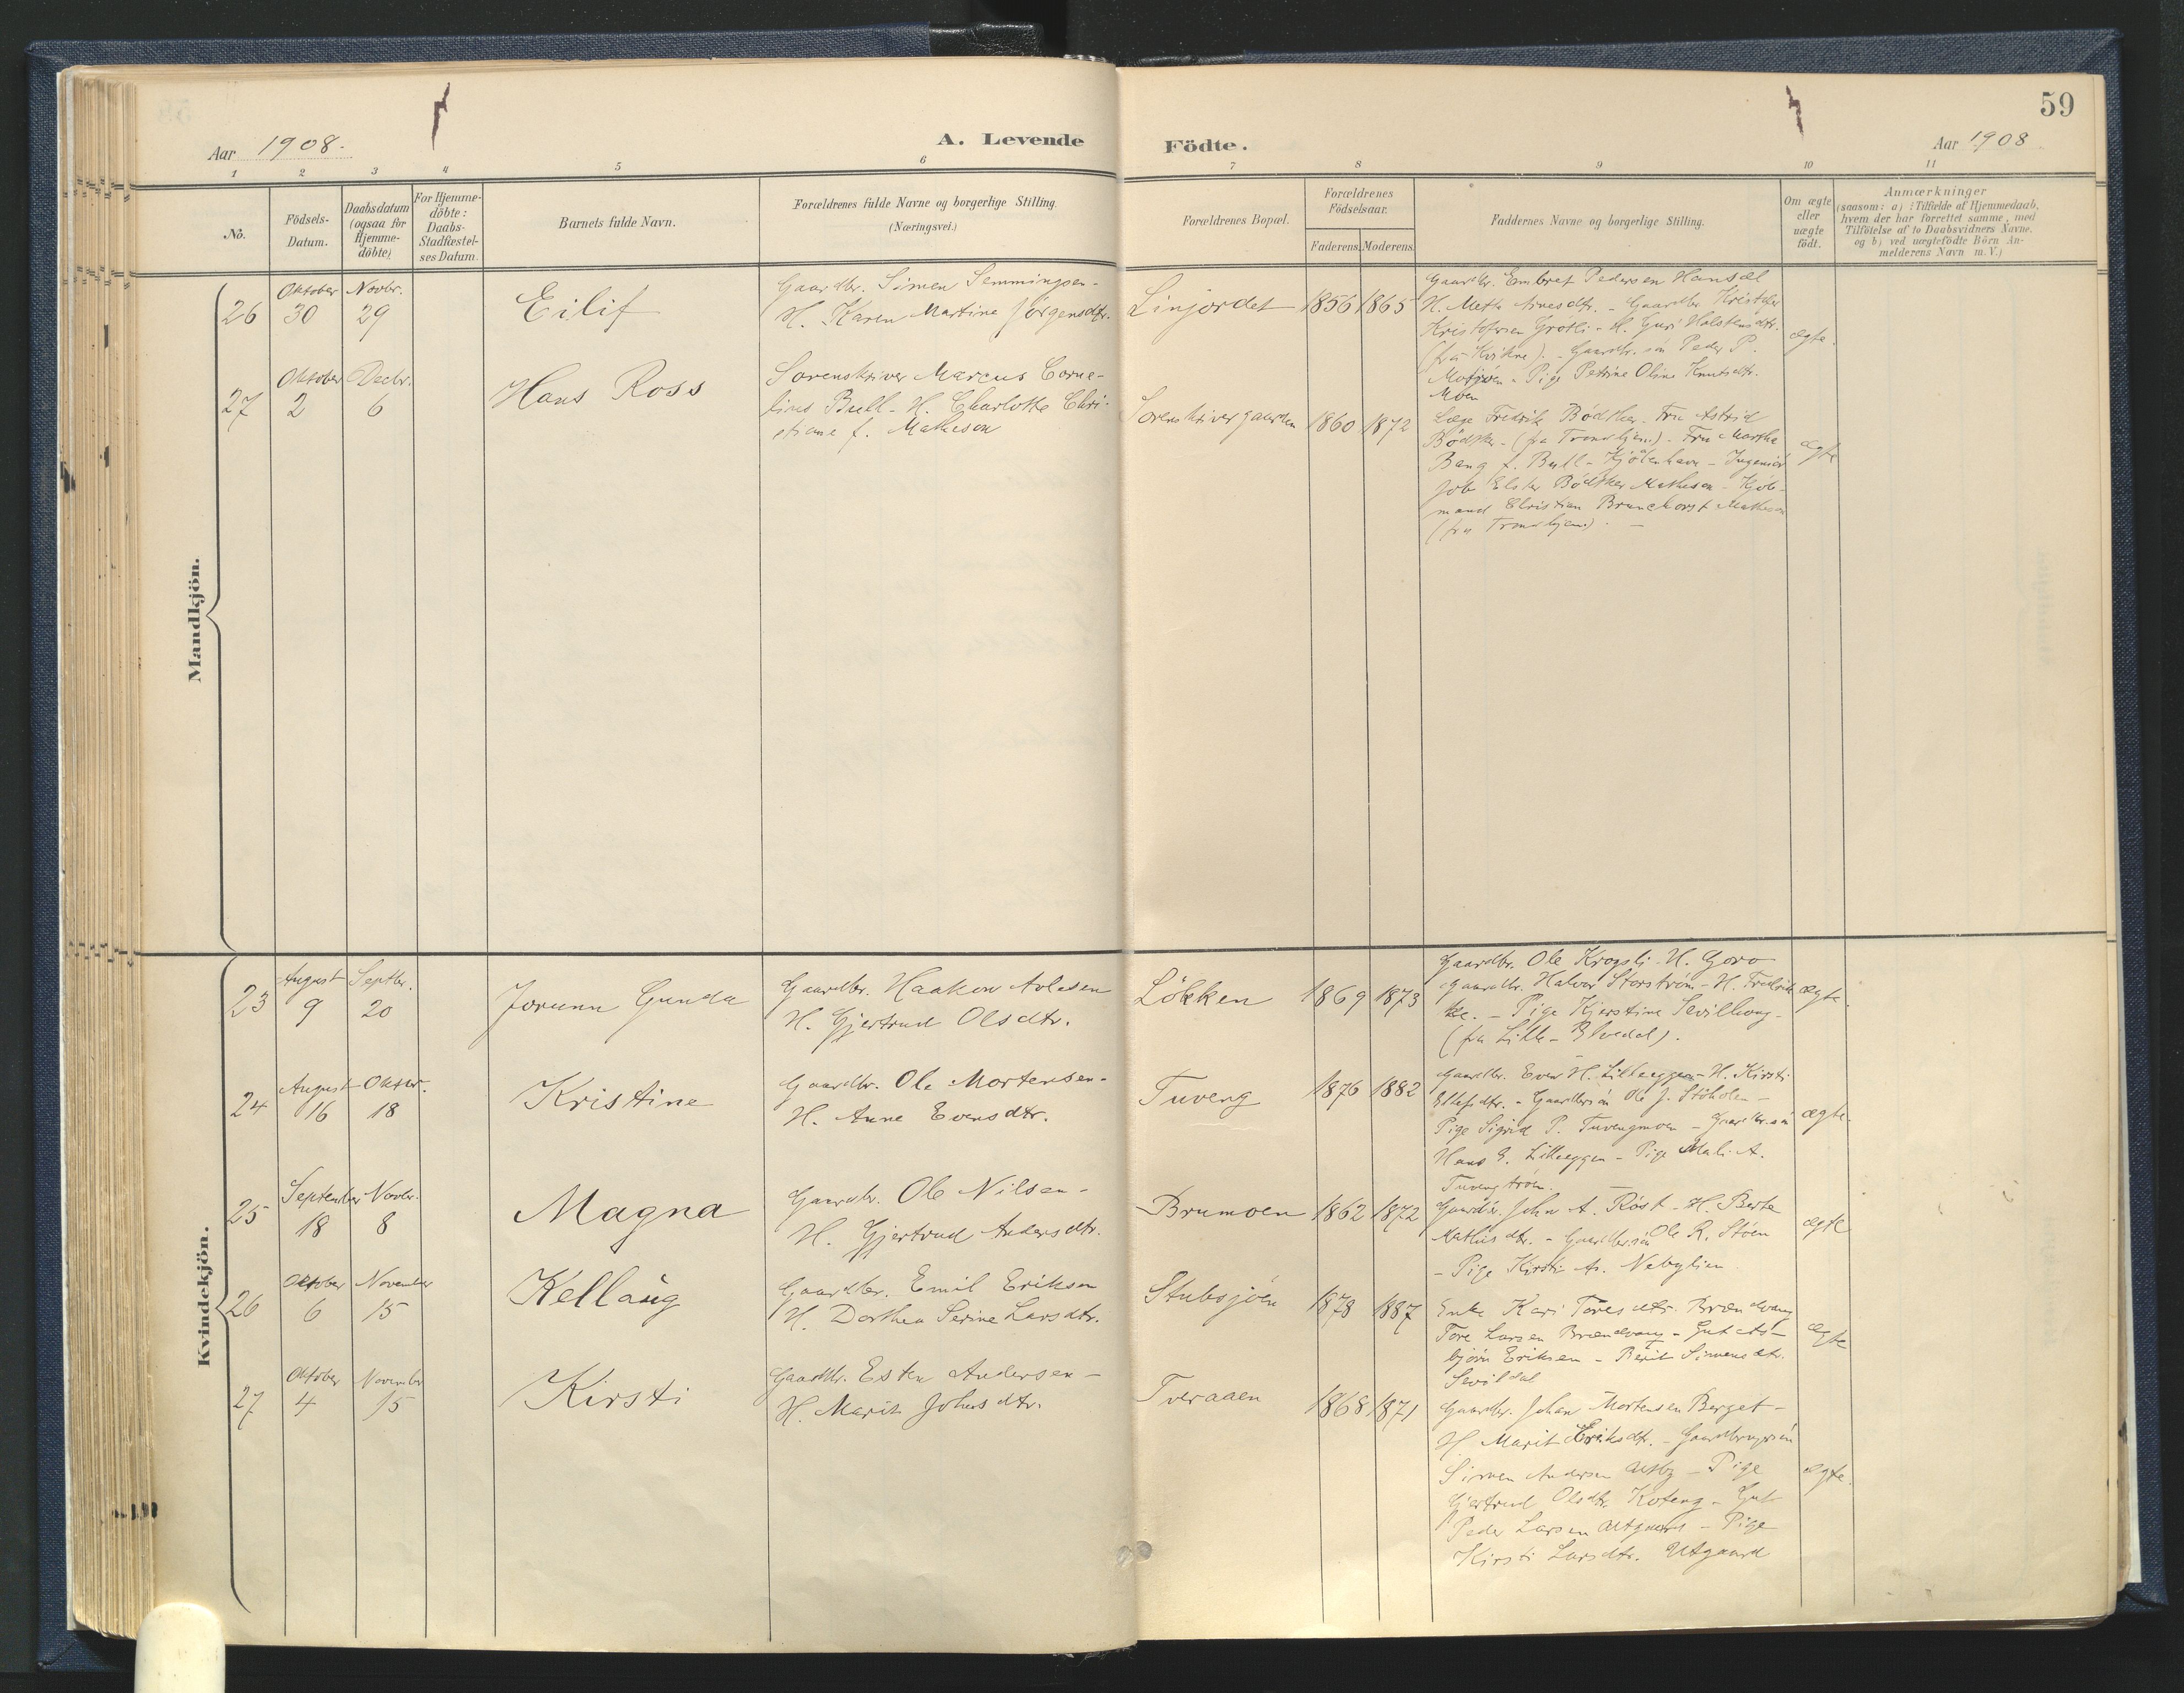 59
Aar 1908.
A. Levende
Födte.
Aar 1908
1 2 3 4 5 6 7 8 9 10 11
No.
Födsels-
Datum.
Daabsdatum
(ogsaa for
Hjemme-
döbte).
For Hjemme-
döbte:
Daabs-
Stadfæstel-
ses Datum.
Barnets fulde Navn.
Forældrenes fulde Navne og borgerlige Stilling.
(Næringsvei.)
Forældrenes Bopæl.
Forældrenes
Födselsaar.
Faderens. Moderens.
Faddernes Navne og borgerlige Stilling.
Om ægte
eller
uægte
födt.
Anmærkninger
(saasom: a) i Tilfælde af Hjemmedaab,
hvem der har forrettet samme, med
Tilföielse af to Daabsvidners Navne.
og b) ved uægtefödte Börn An-
melderens Navn m. V.)
Mandkjön.
26
Oktober
30
Novbr.
29
Eilif
Gaardbr. Simen Semmingsen -
H. Karen Martine Jörgensdtr.
Linjordet
1856
1865
Gaardbr. Embret Pedersen Hansæl
H. Mette Arnesdtr. - Gaardbr. Kristofer
Kristofersen Grötli - H. Guri Halstensdtr.
(fra Kvikne). - Gaardbr. sön Peder P.
Motjöen - Pige Petrine Oline Knutsdtr.
Moen
ægte.
27
Oktober
2
Decbr.
6
Hans Ross
Sorenskriver Marcus Corne-
lius Bull - H. Charlotte Chri-
stiane f. Matheson
Sorenskrivergaarden
1860
1872
Læge Fredrik Bödtker - Fru Astrid
Bödtker - (fra Trondhjem) - Fru Marthe
Bang f. Bull - Kjöbenhavn - Ingeniör
Job Elster Bödtker Matheson - Kjöb-
mand Christian Brunchorst Matheson
(fra Trondhjem). -
ægte
Kvindekjön.
23
August
9
Septbr.
20
Jorunn Gunda
Gaardbr. Haakon Avlesen
H. Gjertrud Olsdtr.
Lökken
1869
1873
Gaardbr. Ole Krogsli - H. Goro
Gaardbr. Halvor Storström - H. Fredrik
ke. - Pige Kjerstine Sevilhaug -
(fra Lille-Elvedal).
ægte.
24
August
16
Oktbr.
18
Kristine
Gaardbr. Ole Mortensen -
H. Anne Evensdtr.
Tuveng
1876
1882
Gaardbr. Even H. Lilleeggen - H. Kirsti
Ellefsdtr. - Gaardbrsön Ole J. Stöholen -
Pige Sigrid P. Tuvengmoen - Gaardbr.sön
Hans E. Lilleeggen - Pige Mali A.
Tuvengström.
ægte.
25
September
18
Novbr.
8
Magna
Gaardbr. Ole Nilsen -
H. Gjertrud Andersdtr.
Brumoen
1862
1872
Gaardbr. John A. Röst - H. Berte
Mathisdtr. - Gaardbr.sön Ole R. Stöen
- Pige Kirsti As. Nebylien
ægte
26
Oktober
6
November
15
Kellaug
Gaardbr. Emil Eriksen
H. Dorthea Serine Larsdtr.
Stubsjöen
1878
1887
Enke Kari Toresdtr. Brændvang
Tore Larsen Brændvang - Gut As-
björn Eriksen - Berit Simensdtr.
Sevildal
ægte
27
Oktober
4
November
15
Kirsti
Gaardbr. Esten Andersen -
H. Marit Johnsdtr.
Tveraaen
1868
1871
Gaardbr. Johan Mortensen Berget -
H. Marit Eriksdtr. - Gaardbrugersön
Simen Andersen Utby - Pige
Gjertrud Olsdtr. Koteng - Gut
Peder Larsen Utgaard - Pige
Kirsti Larsdtr. Utgaard
ægte.